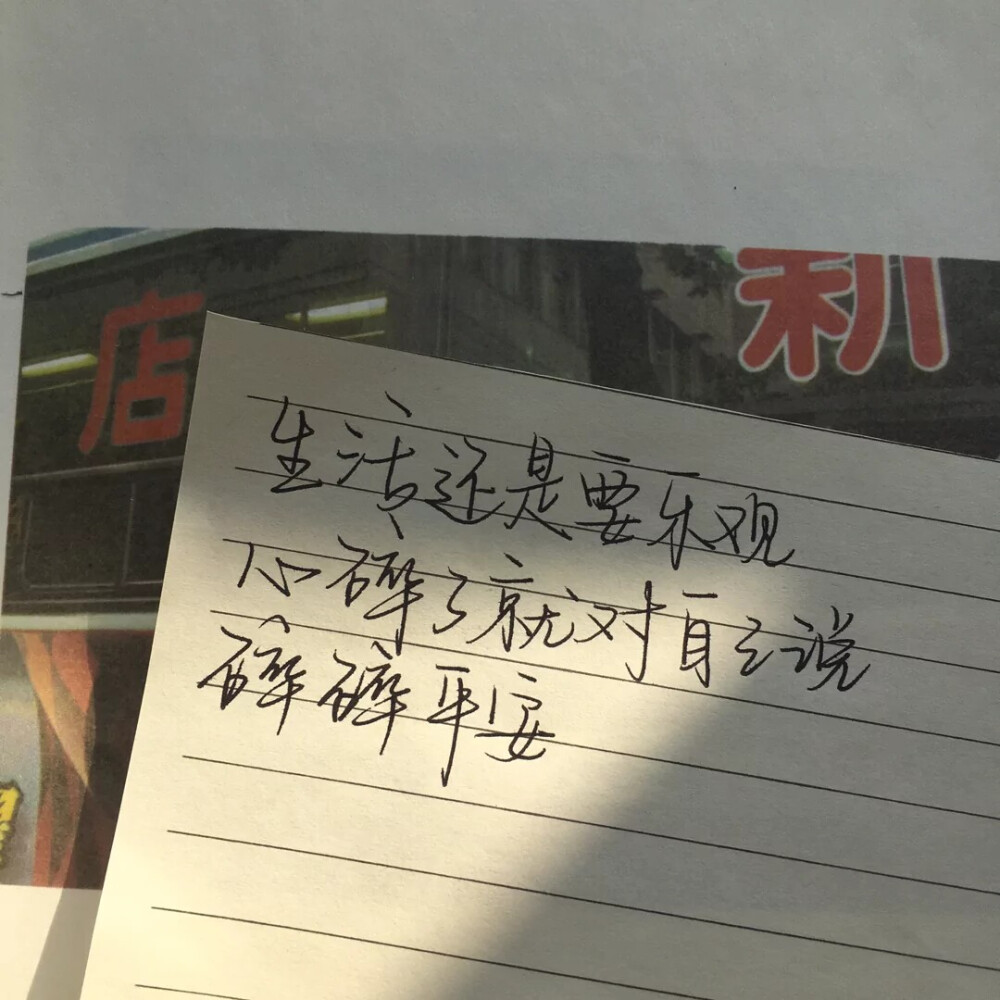 店
新
生活还是要乐观
心碎了就对自己说
碎碎平安